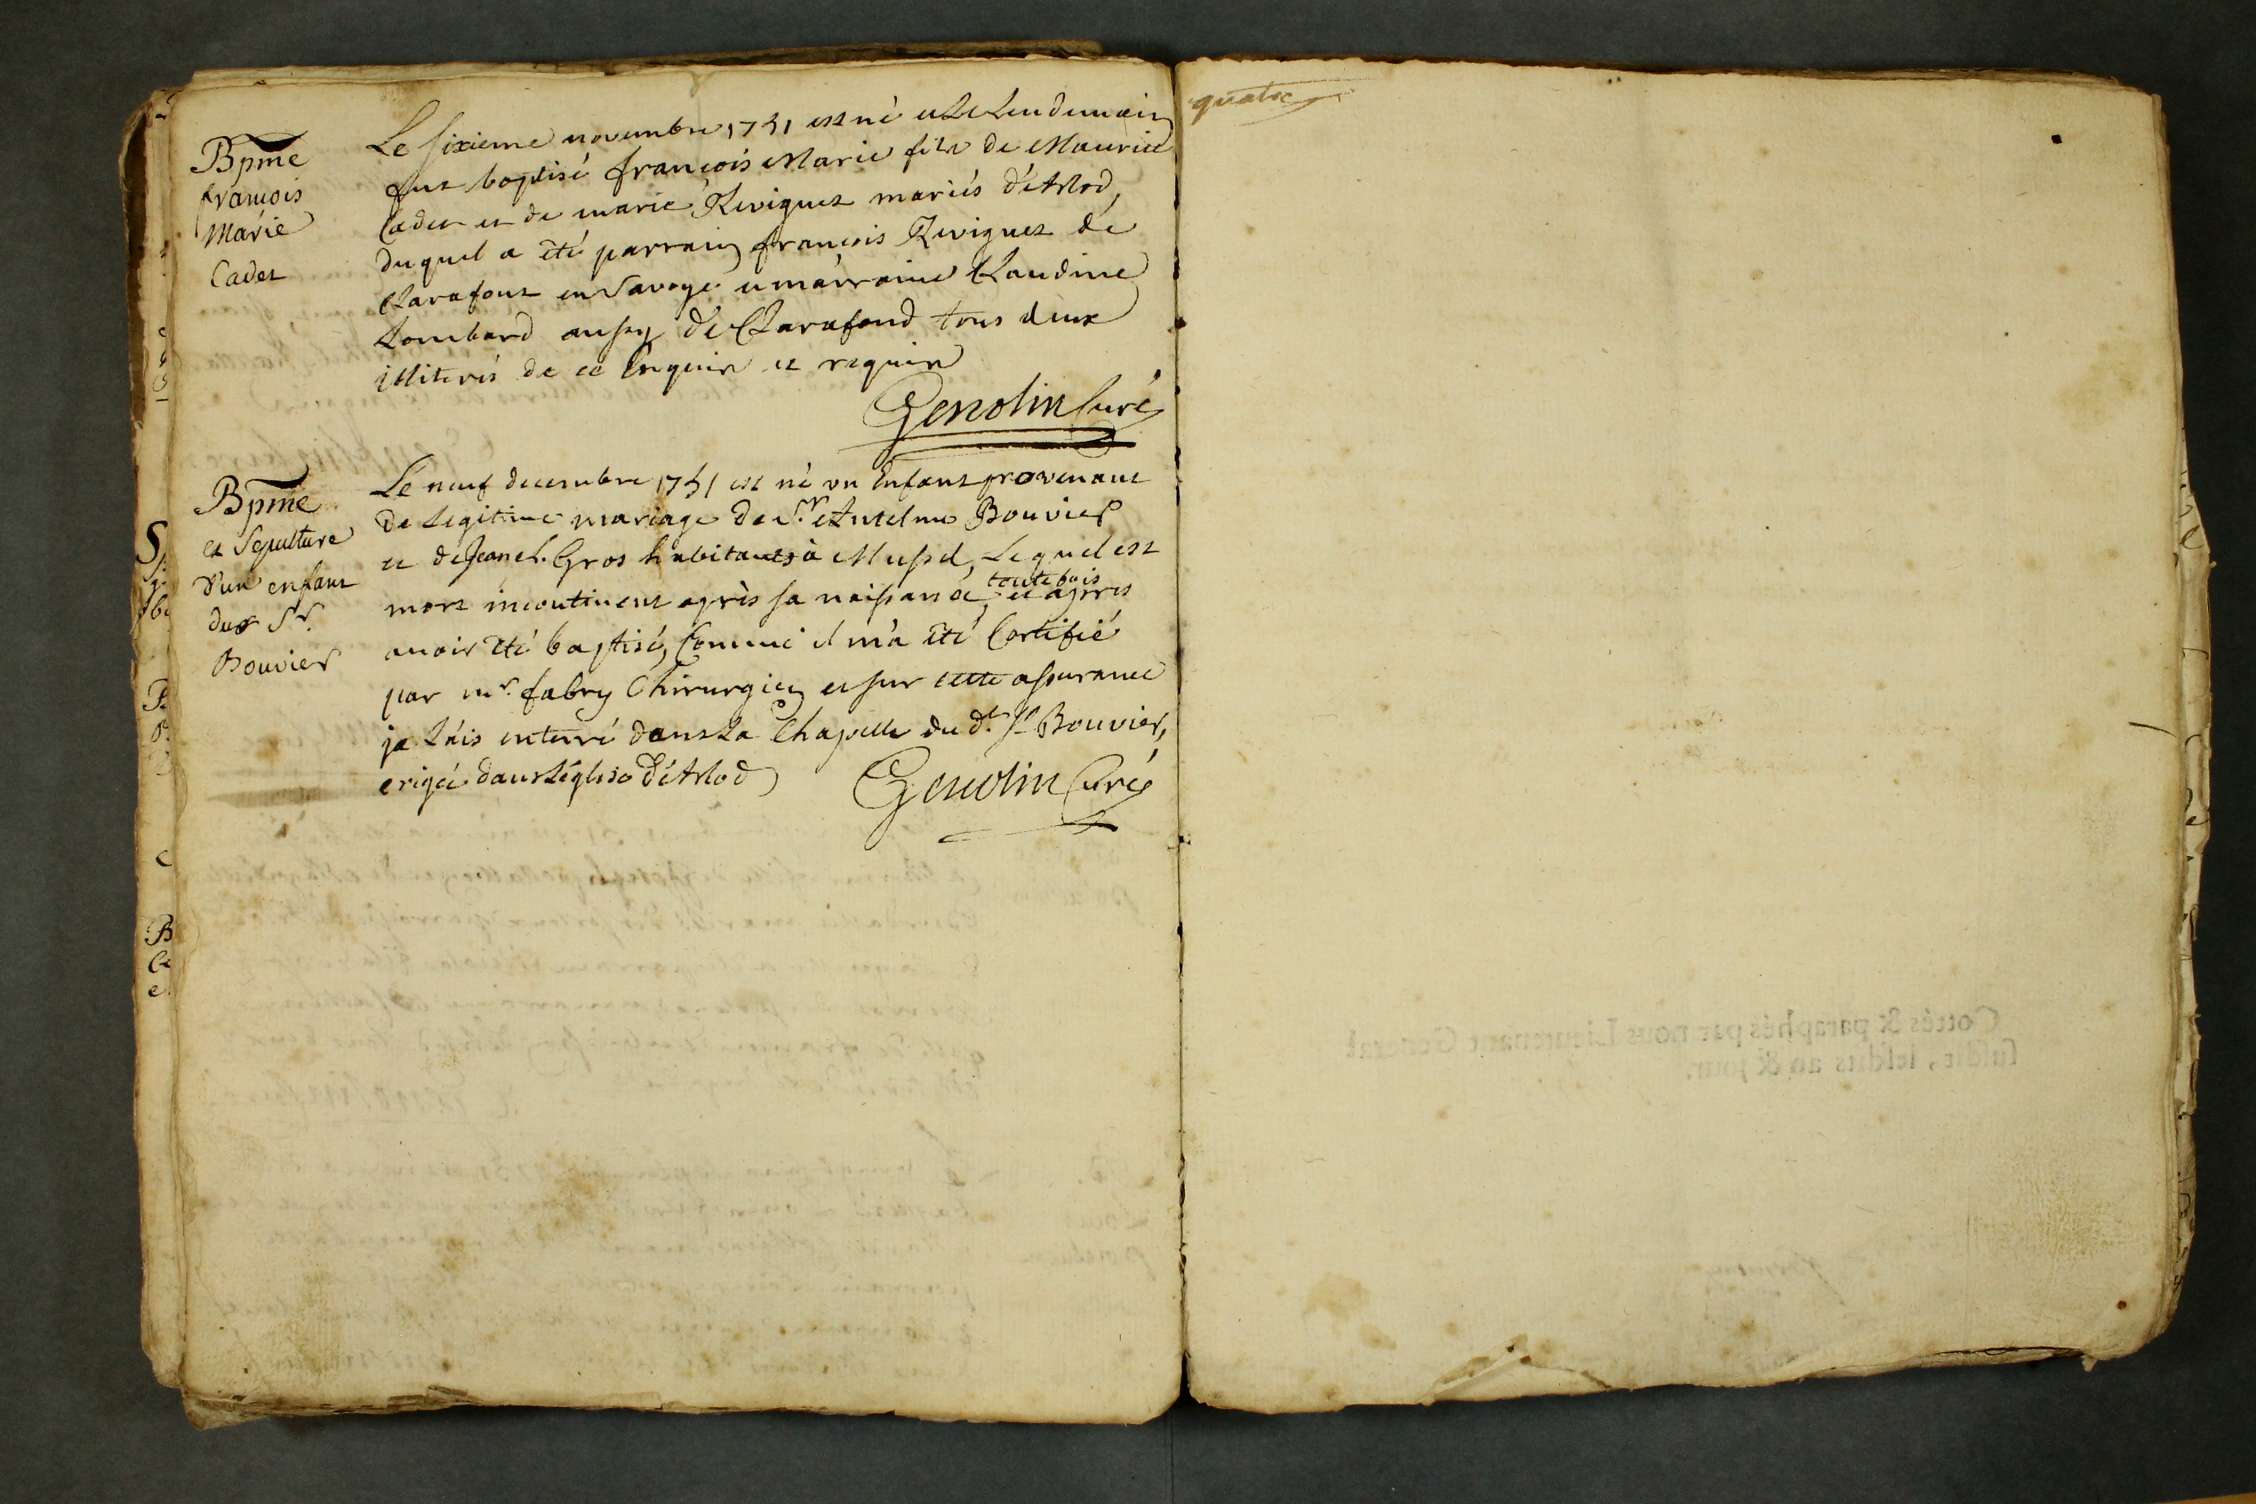 Bpme
françois
Marie
Cadet
Le sixieme novembre 1751 est né et le lendemain
fut baptisé françois Marie fils de Maurice
Cadet et de marie Reviguet mariés d'Arlod,
duquel a été parrain françois Reviguet de
Clarafont en Savoye et marraine Claudine
Lombard aussy de Clarafond tous deux
illiterés de ce enquis et requis
Genolin Curé
Bpme
et Sepulture
d'un enfant
du Sr.
Bouvier
Le neuf decembre 1751 est né un Enfant provenant
de Legitime mariage de Sr. Antelme Bouvier
et de Jeane L. Gros habitants à Mussel, Lequel est
mort incontinent après sa naissance, toutefois et après
avoir été baptisé, Comme il m'a été Certifié
par mr. fabry Chirurgien et sur cette assurance
je L'ais enterré dans La Chapelle du dt. Sr Bouvier,
erigée dans L'église d'Arlod
Genolin Curé
quatre
Cottés & paraphés par nous Lieutenant General
susdit, lesdits an & jour.